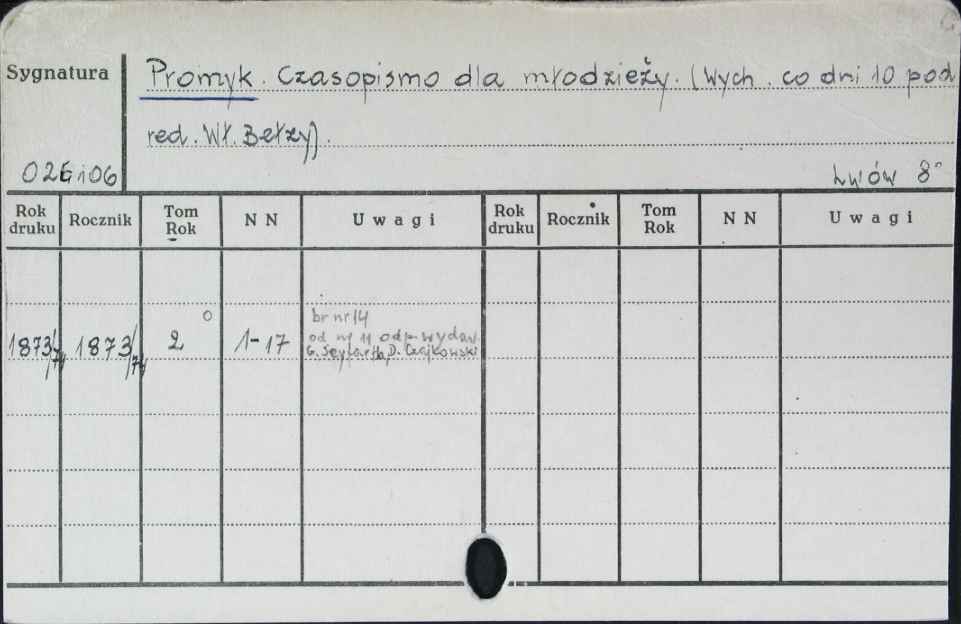 Sygnatura Promyk. Czasopismo dla młodzieży. (Wych. co dni 10 pod
red. Wł. Bełzy).
Lwów 8°
Rok druku Rocznik Tom Rok N N Uwagi Rok druku Rocznik Tom Rok N N Uwagi
br nr 14
1873/74 1873/74 2 1-17 od nr 11 odp. wydaw.
G. Seyfarth, D. Czajkowski